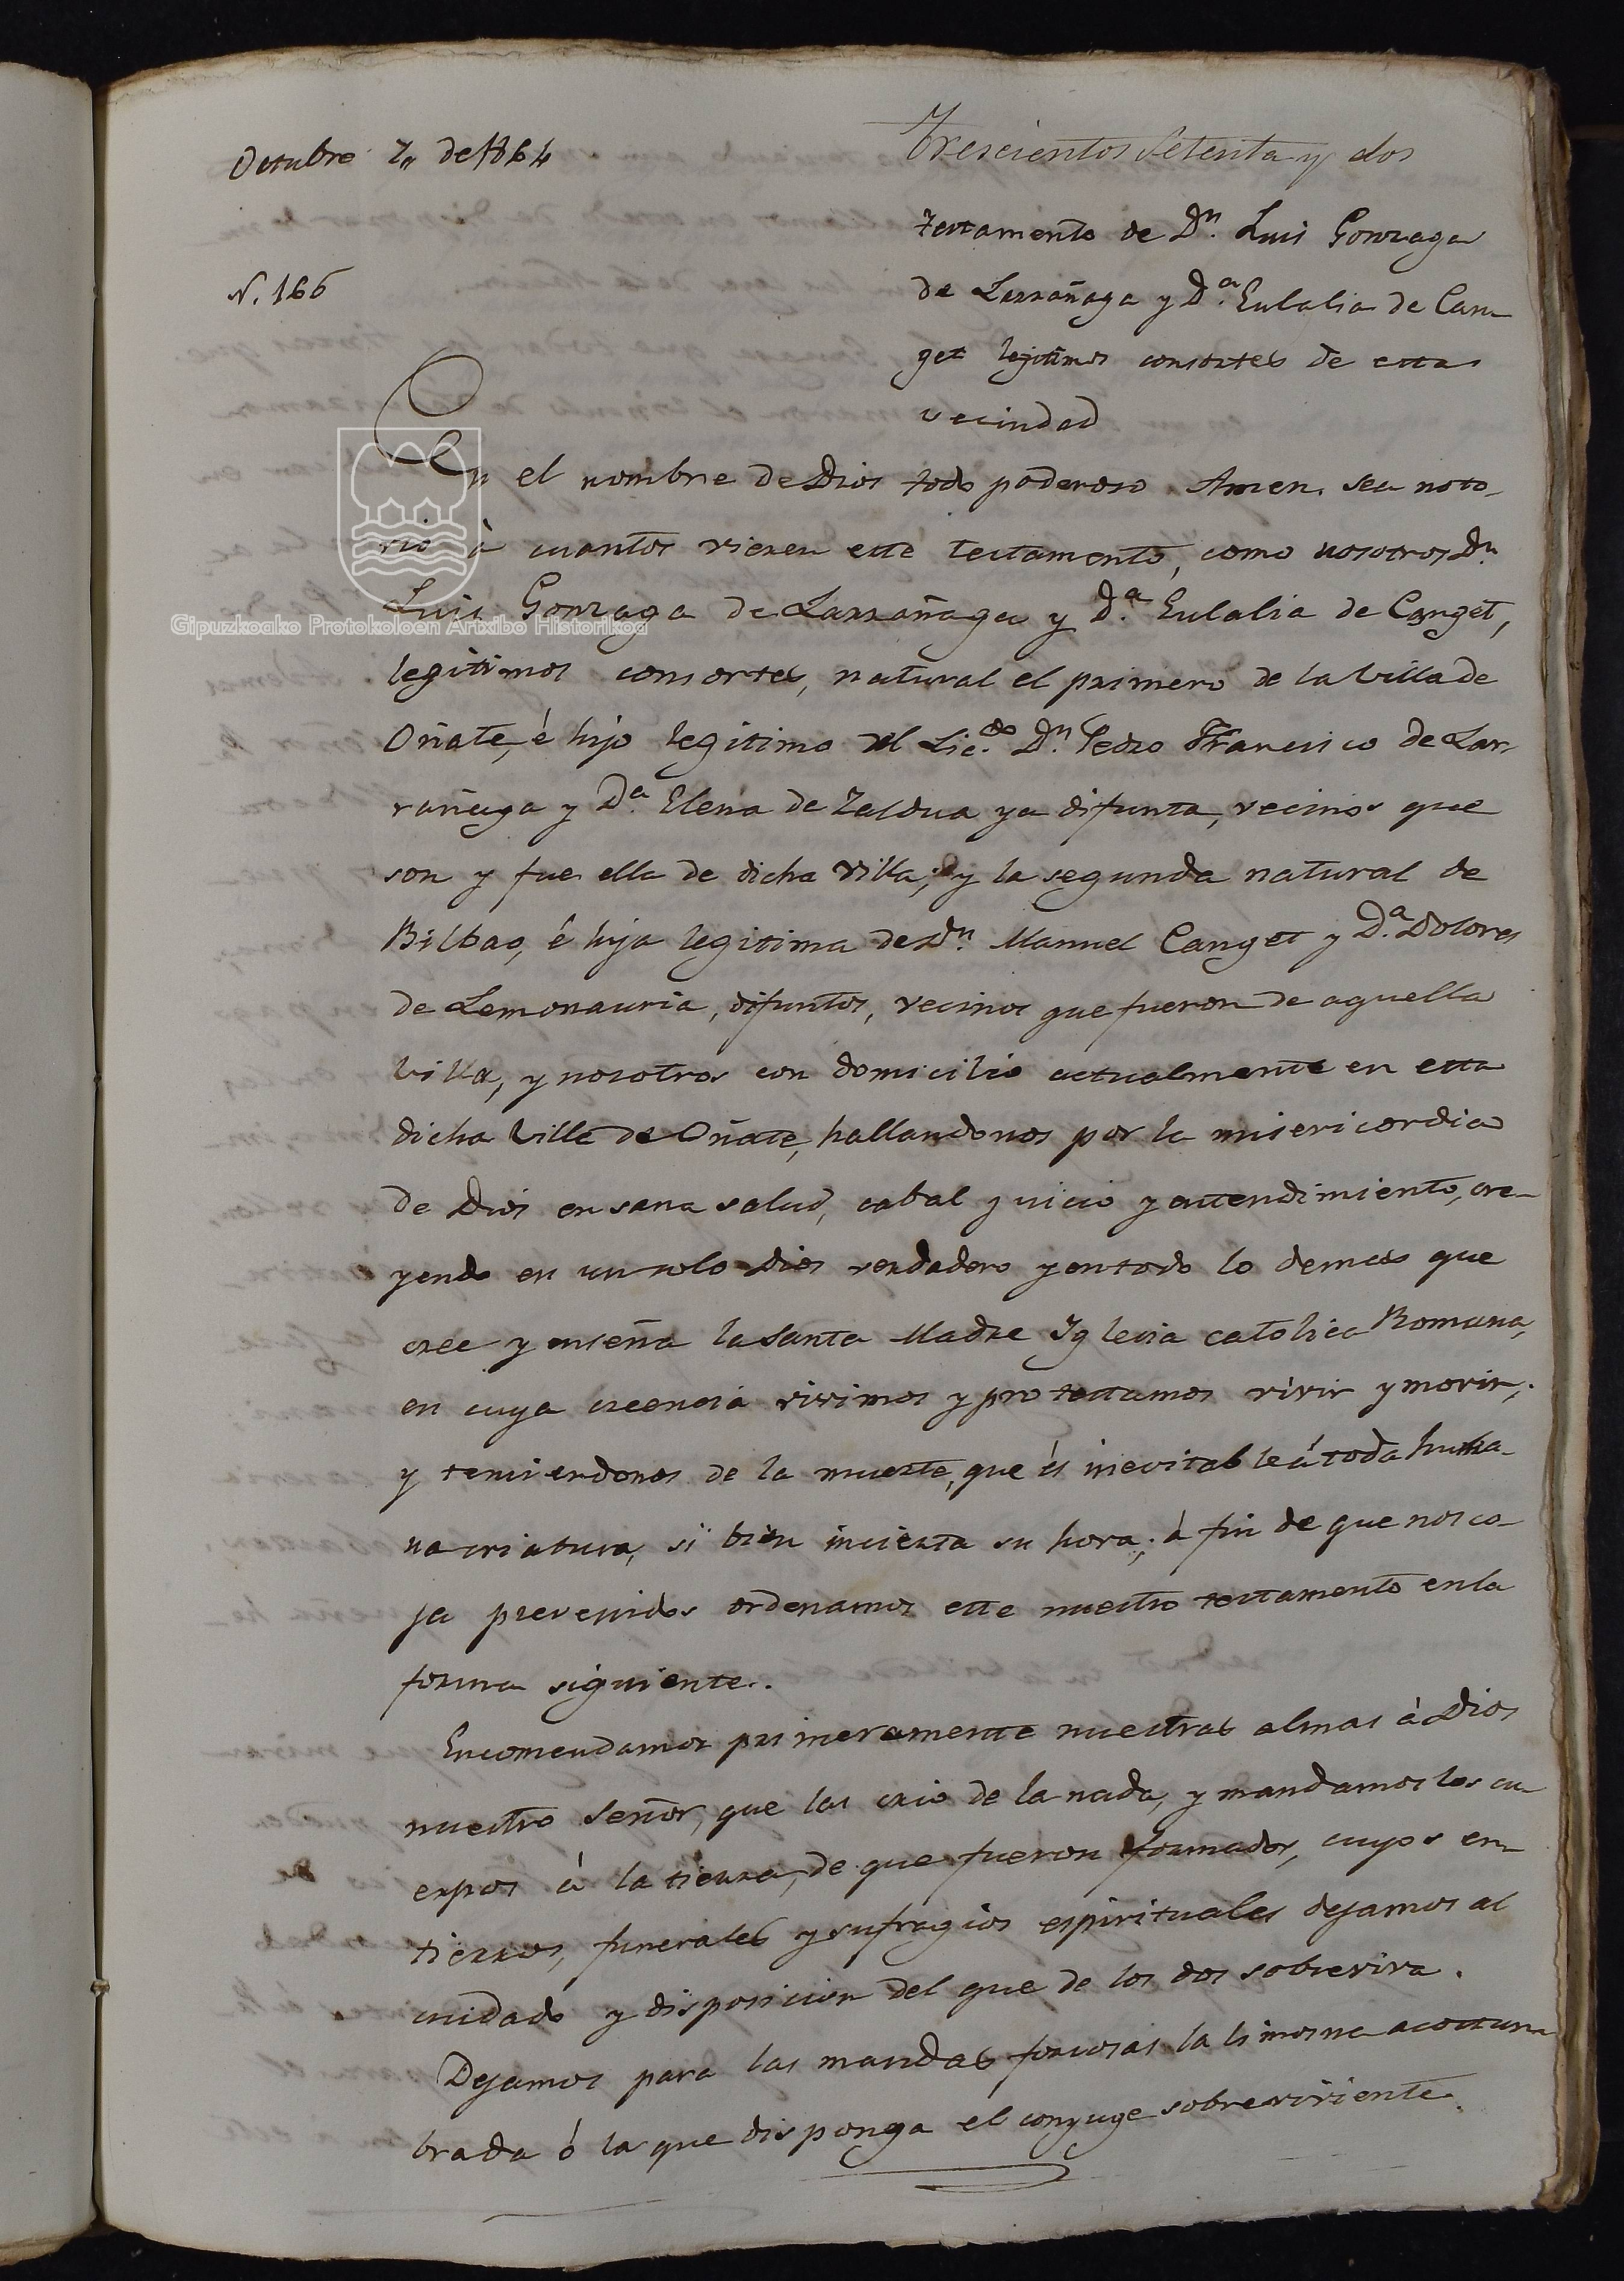 Octubre 7,, de 1864
Trescientos Setenta y dos
N. 166
Testamento de D.n Luis Gonzaga
de Larrañaga y D.a Eulalia de Can-
get legitimos consortes de esta
vecindad
En el nombre de Dios todo poderoso Amen. Sea noto-
rio à cuantos vieren este testamento, como nosotros D.n
Luis Gonzaga de Larrañaga y D.a Eulalia de Canget,
legitimos consortes, natural el primero de la Villa de
Oñate, é hijo legitimo del Lic.do D.n Pedro Francisco de Lar-
rañaga y D.a Elena de Zaldua ya difunta, vecinos que
son y fue ella de dicha Villa; y la segunda natural de
Bilbao, é hija legitima de D.n Manuel Canget y D.a Dolores
de Lemonauria, difuntos, vecinos que fueron de aquella
Villa, y nosotros con domicilio actualmente en esta
dicha Villa de Oñate, hallandonos por la misericordia
de Dios en sana salud, cabal juicio y entendimiento, cre-
yendo en un solo Dios verdadero y en todo lo demas que
cree y enseña la Santa Madre Iglesia católica Romana,
en cuya creencia vivimos y protestamos vivir y morir;
y temiendonos de la muerte, que és inevitable á toda huma-
na criatura, si bien incierta su hora; à fin de que nos co-
ja prevenidos ordenamos este nuestro testamento en la
forma siguiente.
Encomendamos primeramente nuestras almas à Dios
nuestro Señor, que las crio de la nada, y mandamos los cu-
erpos à la tierra, de que fueron formados, cuyos en-
tierros, funerales y sufragios espirituales dejamos al
cuidado y disposicion del que de los dos sobreviva.
Dejamos para las mandas forzosas la limosna acostum-
brada ó la que disponga el conyuge sobreviviente.
Gipuzkoako Protokoloen Artxibo Historikoa